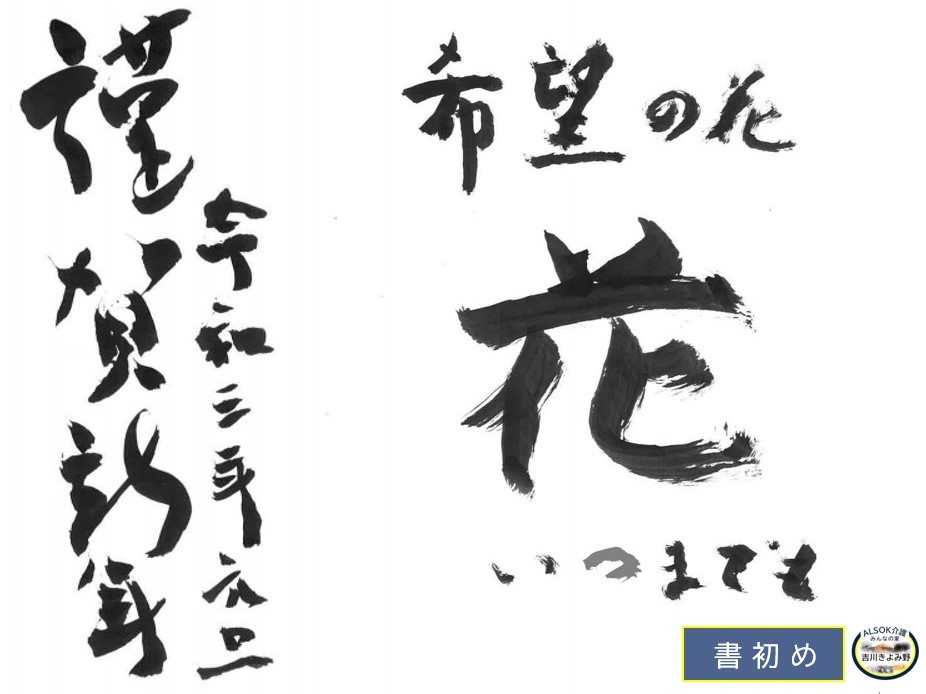 謹賀新年
令和三年元旦
希望の花
花
いつまでも
書初め
ALSOK介護
みんなの家
吉川きよみ野